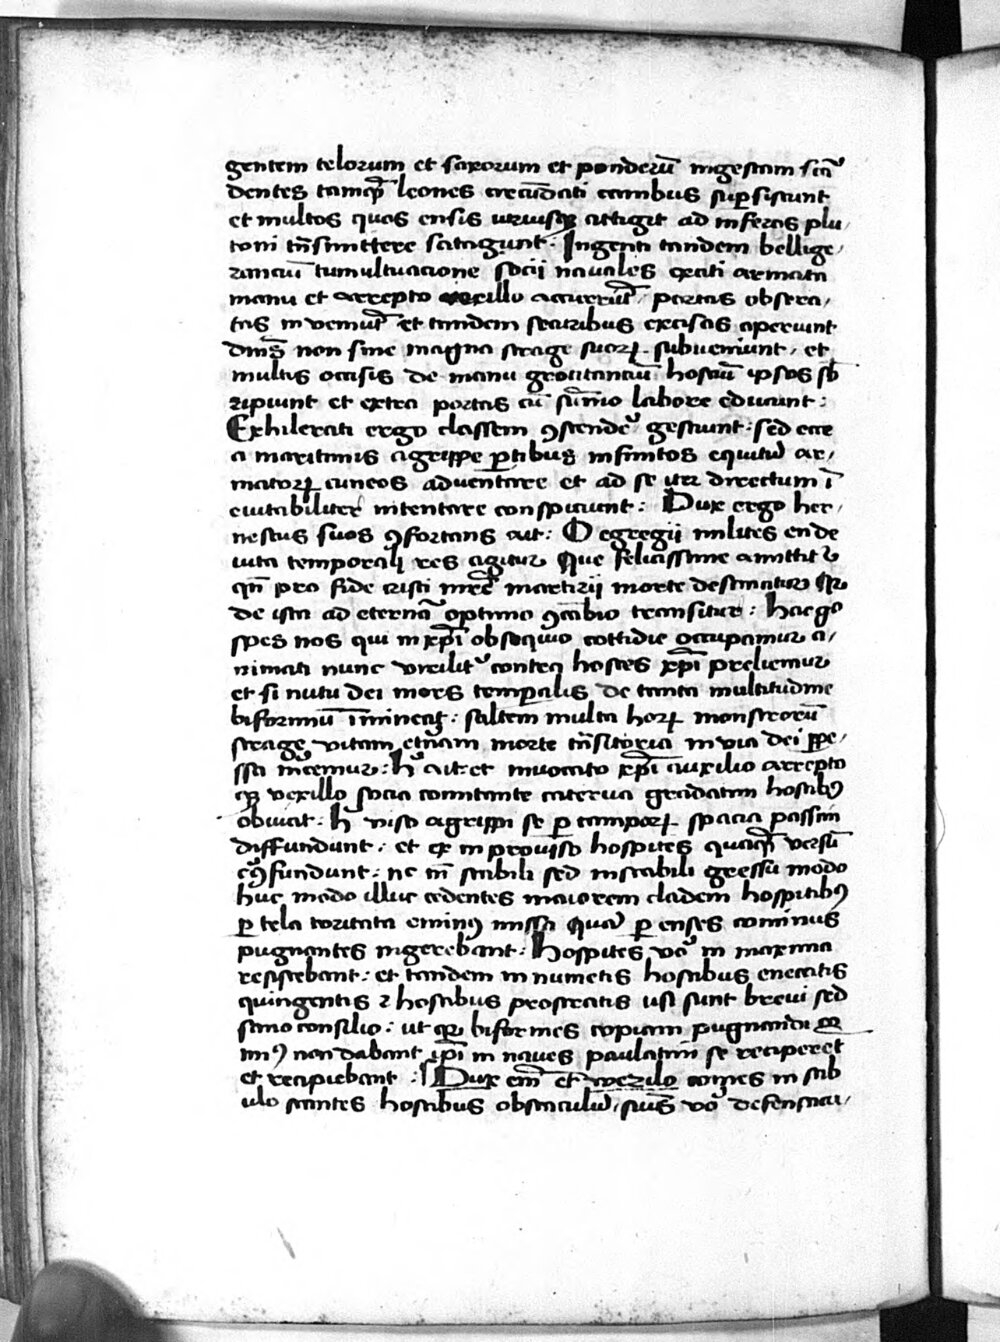 gentem telorum et saxorum et ponderū ingestam
dentes tamqͣ leones crescūdati cambus supersistunt
et multos quos ensis utriusqꝫ attigit ad inferos plu
toni tn̄smittere satagunt. Ingenti tandem bellige,
ranciū tumultuacione socij nauales exciti armata
manu et arrepto vexillo accurrūt. portas obsera,
tas inveniūt et tandem securibus excisas aperiunt
non sine magna strage suorꝝ subueniunt, et
multis occisis de manu grocitanciū hostiū ipsos sb̄
ripiunt et extra portas cū sūmo labore educunt:
Exhilerati ergo classem ꝯscendeˀ gestiunt: sed ecce
a maritimis agrippe ꝑtibus infinitos equitū ar,
matorꝝ cuneos aduentare et ad se iter directum ī
euitabiliter intentare conspiciunt: Dux ergo her,
nestus suos ꝯfortans ait: O egregij milites en de
uita temporali res agitur Que felicissime amittitur
qn̄ pro fide cristi morte destinatur
de ista ad eternā optimo ꝯcābio transitur: Hac ergo
spes nos qui in xp̄i obsequio cottidie occupamur a,
nimati nunc virilitˀ contra hostes xp̄i preliemur
et si nutu dei mors temꝑalis de tanta multitudine
biformiū īmineat: saltem multa horꝝ monstrorū
strage vitam et̄nam morte tn̄sitoria in via dei ꝑpe,
ssa mercemur: h̄ ait et inuocato xp̄i auxilio arrepto
qꝫ vexillo socia comitante caterua gradatim hostibꝯ
obuiat: h̄ viso agrippi se ꝑ camporꝝ spacia passim
diffundunt: et ex inprouiso hospites quaqͣ versū
ꝯfundunt: nec tn̄ stabili sed instabili gressu modo
huc modo illuc cedentes maiorem cladem hospitibꝯ
ꝑ tela toxicata eminꝯ missa quā ꝑ enses cominus
pugnantes ingerebant: Hospites vo in maxima
resistebant: et tandem in numeris hostibus enecatis
quingentis ꝛ hostibus prostratis usi sunt breui sed
sano consilio: ut qꝫ biformes copiam pugnandi
nō dabant ip̄i in naues paulatim se reciperēt
et recipiebant: Dux em̄ et wezilo comes in stib
ulo stantes hostibus obstaculū, suis vo defensacu,